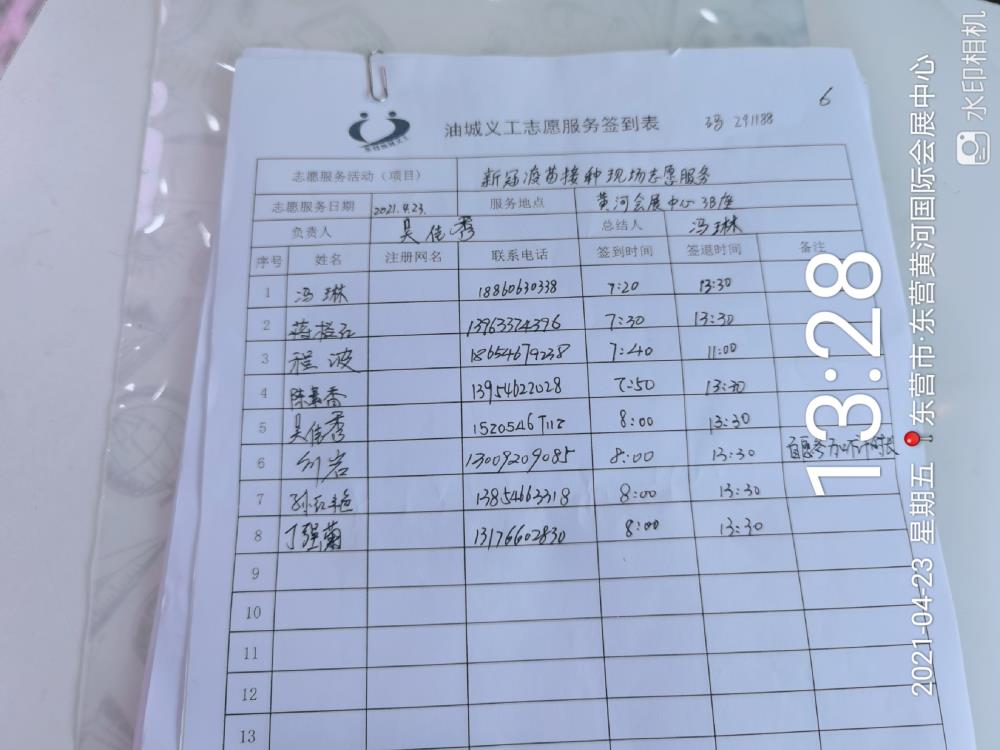 6
油城义工志愿服务签到表 291188
志愿服务活动（项目） 新冠疫苗接种现场志愿服务
志愿服务日期 2021.4.23. 服务地点 黄河会展中心 3B座
负责人 吴佳秀 总结人 冯琳
序号 姓名 注册网名 联系电话 签到时间 签退时间 备注
1 冯琳 18860630338 7:20 13:30
2 13963374396 7:30 13:30
3 程波 18654679238 7:40 11:00
4 陈素香 13954622028 7:50 13:30
5 吴佳秀 15205467112 8:00 13:30
6 刘岩 13009209085 8:00 13:30
7 孙红艳 13854663318 8:00 13:30
8 丁强菊 13176602830 8:00 13:30
9
10
11
12
13
13:28
2021-04-23 星期五 东营市·东营黄河国际会展中心
水印相机